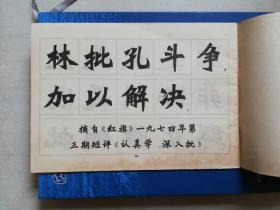 林批孔斗争，
加以解决。
摘自《红旗》一九七四年第
三期短评《认真学 深入批》